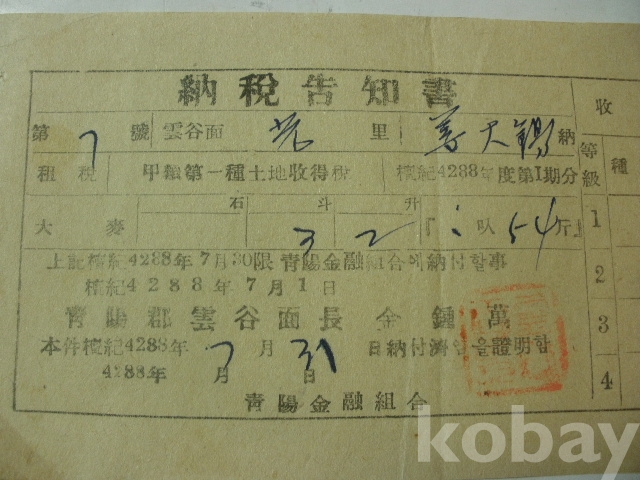 納稅告知書
第 7 號 雲谷面 里 大錫 納
租稅 甲類第一種土地收得稅 檀紀4288年度第1期分
石 斗 升
大麥 3 2 『 : 叺 54 斤』
上記檀紀4288年7月30限 青陽金融組合에納付할事
檀紀4288年7月1日
青陽郡雲谷面長 金鍾萬
本件檀紀4288年 7 月 31 日納付濟임을證明함
4288年 月 日
青陽金融組合
收
等級 種
1
2
3
4
kobay